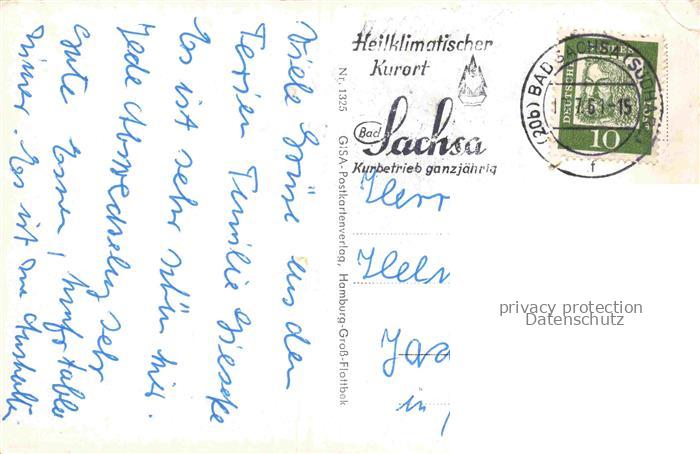 Viele Grüße aus den
Ferien Familie Gieseke
Es ist sehr schön hier.
Jede Abwechselug sehr
gute Essen, komfortable
Zimmer. Es ist zum Aushalten.
Nr. 1325 GISA-Postkartenverlag, Hamburg-Groß-Flottbek
Heilklimatischer
Kurort
Bad Sachsa
Kurbetrieb ganzjährig
(20b) BAD SACHSA (SÜDHARZ)
-15
f
DEUTSCHE BUNDESPOST
10
Herr
in
privacy protection
Datenschutz